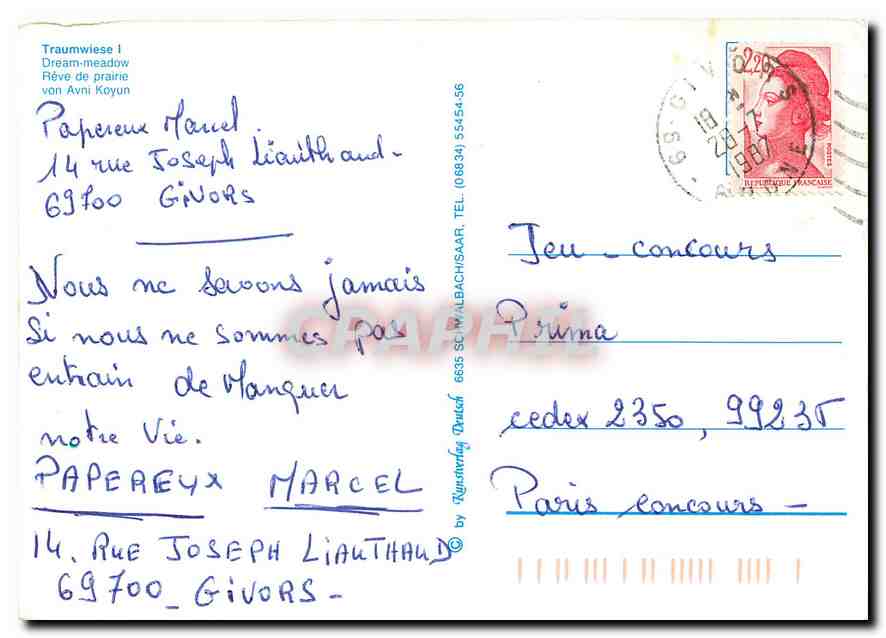 Traumwiese I
Dream-meadow
Rêve de prairie
von Avni Koyun
Papereux Marcel.
14 rue Joseph Liauthaud-
69700 GIVORS
Nous ne savons jamais
Si nous ne sommes pas
entrain de Manquer
notre Vie.
PAPEREUX MARCEL
14, RUE JOSEPH LIAUTHAUD
69700_ GIVORS_
© by Kunstverlag Deutsch 6635 SCHWALBACH/SAAR, TEL. (06834) 55454-56
2,20
POSTES
REPUBLIQUE FRANCAISE
69-GIVORS
18 H
28-7
1987
RHONE
Jeu - concours
Prima
cedex 2350, 99235
Paris concours -
CPAPHIL